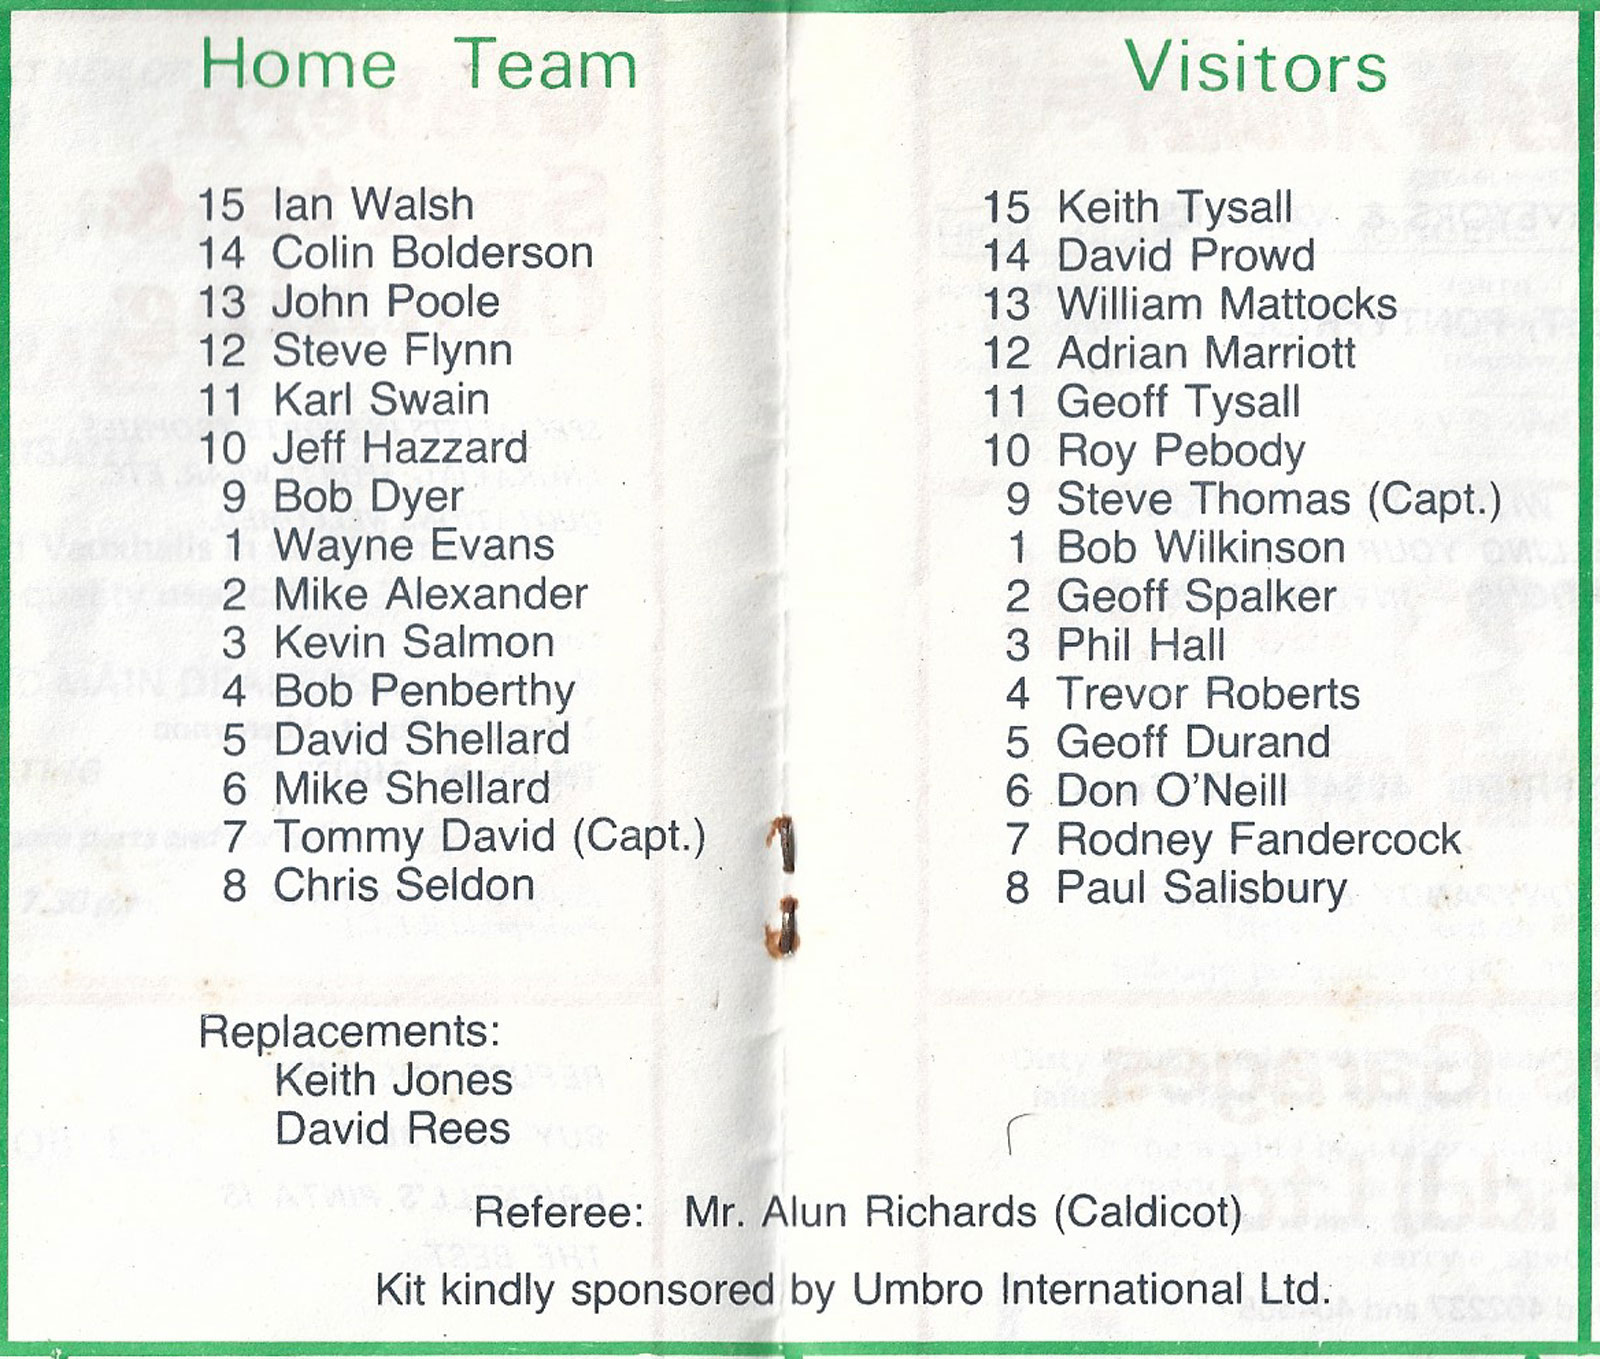 Home Team
15 Ian Walsh
14 Colin Bolderson
13 John Poole
12 Steve Flynn
11 Karl Swain
10 Jeff Hazzard
9 Bob Dyer
1 Wayne Evans
2 Mike Alexander
3 Kevin Salmon
4 Bob Penberthy
5 David Shellard
6 Mike Shellard
7 Tommy David (Capt.)
8 Chris Seldon
Replacements:
Keith Jones
David Rees
Visitors
15 Keith Tysall
14 David Prowd
13 William Mattocks
12 Adrian Marriott
11 Geoff Tysall
10 Roy Pebody
9 Steve Thomas (Capt.)
1 Bob Wilkinson
2 Geoff Spalker
3 Phil Hall
4 Trevor Roberts
5 Geoff Durand
6 Don O'Neill
7 Rodney Fandercock
8 Paul Salisbury
Referee: Mr. Alun Richards (Caldicot)
Kit kindly sponsored by Umbro International Ltd.